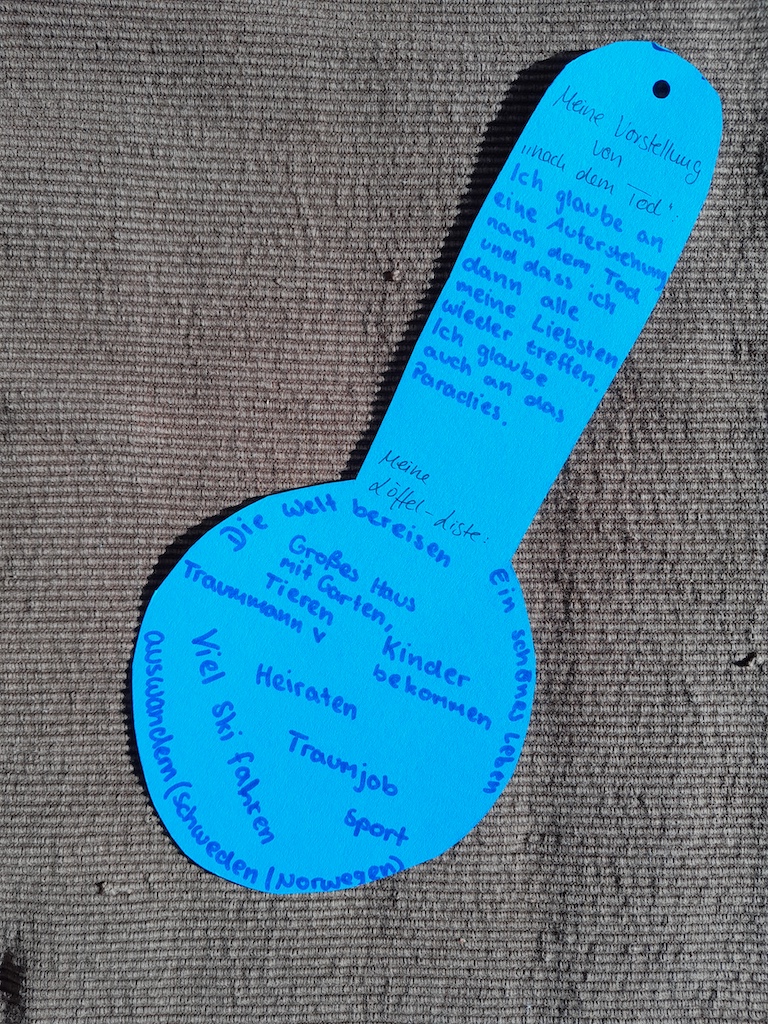 Meine Vorstellung
von
„nach dem Tod":
Ich glaube an
eine Auferstehung
nach dem Tod
und dass ich
dann alle
meine Liebsten
wieder treffen.
Ich glaube
auch an das
Paradies.
Meine
Löffel-Liste:
Die Welt bereisen
Ein schönes Leben
Großes Haus
mit Garten,
Tieren
Traummann v
Kinder
bekommen
Heiraten
Viel Ski fahren
Traumjob
Sport
auswandern (Schweden / Norwegen)